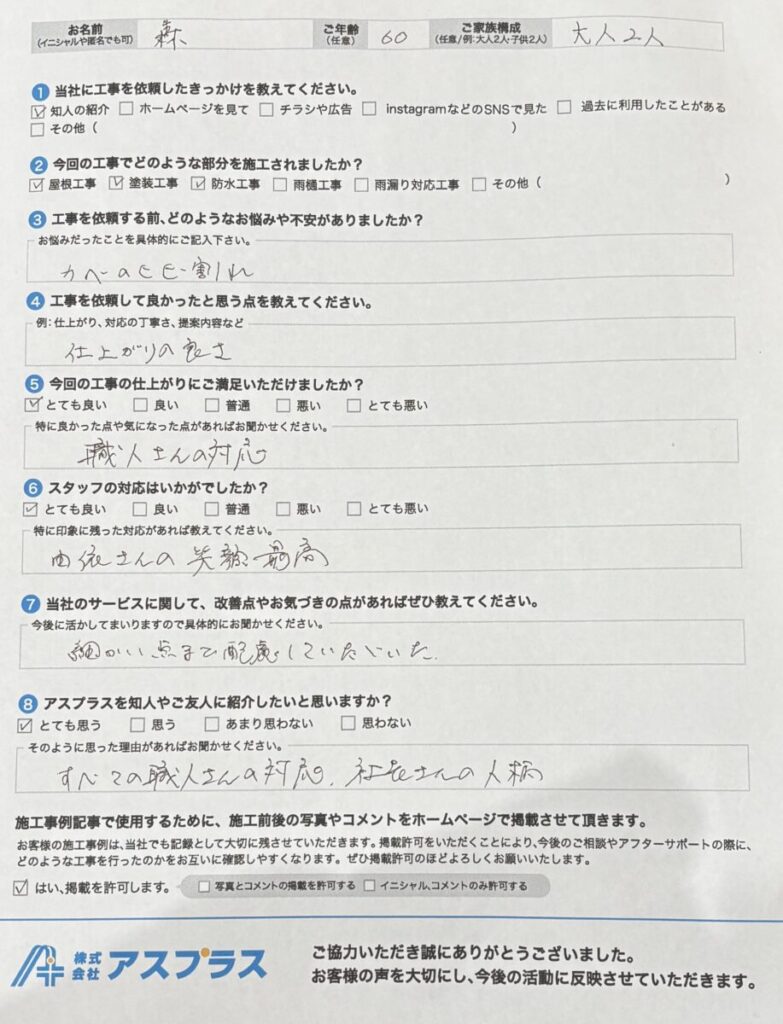 お名前
(イニシャルや匿名でも可)
森
ご年齢
(任意)
60
ご家族構成
(任意/例:大人2人・子供2人)
大人2人
1 当社に工事を依頼したきっかけを教えてください。
☑ 知人の紹介 □ ホームページを見て □ チラシや広告 □ instagramなどのSNSで見た □ 過去に利用したことがある
□ その他( )
2 今回の工事でどのような部分を施工されましたか?
☑ 屋根工事 ☑ 塗装工事 ☑ 防水工事 □ 雨樋工事 □ 雨漏り対応工事 □ その他( )
3 工事を依頼する前、どのようなお悩みや不安がありましたか?
お悩みだったことを具体的にご記入下さい。
カベのヒビ割れ
4 工事を依頼して良かったと思う点を教えてください。
例:仕上がり、対応の丁寧さ、提案内容など
仕上がりの良さ
5 今回の工事の仕上がりにご満足いただけましたか?
☑ とても良い □ 良い □ 普通 □ 悪い □ とても悪い
特に良かった点や気になった点があればお聞かせください。
職人さんの対応
6 スタッフの対応はいかがでしたか?
☑ とても良い □ 良い □ 普通 □ 悪い □ とても悪い
特に印象に残った対応があれば教えてください。
由依さんの笑顔最高
7 当社のサービスに関して、改善点やお気づきの点があればぜひ教えてください。
今後に活かしてまいりますので具体的にお聞かせください。
細かい点まで配慮していただいた.
8 アスプラスを知人やご友人に紹介したいと思いますか?
☑ とても思う □ 思う □ あまり思わない □ 思わない
そのように思った理由があればお聞かせください。
すべての職人さんの対応、社長さんの人柄
施工事例記事で使用するために、施工前後の写真やコメントをホームページで掲載させて頂きます。
お客様の施工事例は、当社でも記録として大切に残させていただきます。掲載許可をいただくことにより、今後のご相談やアフターサポートの際に、
どのような工事を行ったのかをお互いに確認しやすくなります。ぜひ掲載許可のほどよろしくお願いいたします。
☑ はい、掲載を許可します。 □ 写真とコメントの掲載を許可する □ イニシャル、コメントのみ許可する
株式会社 アスプラス
ご協力いただき誠にありがとうございました。
お客様の声を大切にし、今後の活動に反映させていただきます。